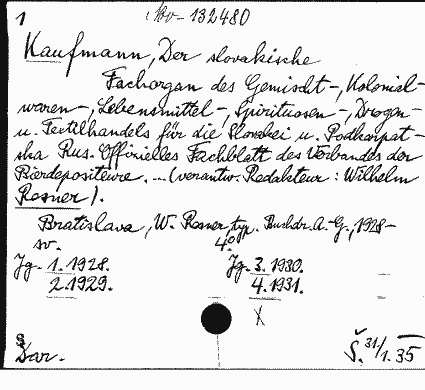 1
132480
Kaufmann, Der slovakische
Fachorgan des Gemischt-, Kolonial-
waren-, Lebensmittel-, Spirituosen-, Drogen-
u. Textilhandels für die Slovakei u. Podkarpat-
ska Rus. Offizielles Fachblatt des Verbandes der
Bierdepositeure. ... (verantw. Redakteur: Wilhelm
Rosner).
Bratislava, W. Rosner, typ. Buchdr. A.-G., 1928-
sv. 4°
Jg. 1. 1928. Jg. 3. 1930.
2. 1929. 4. 1931.
X
Dar. Š. 31/1. 35